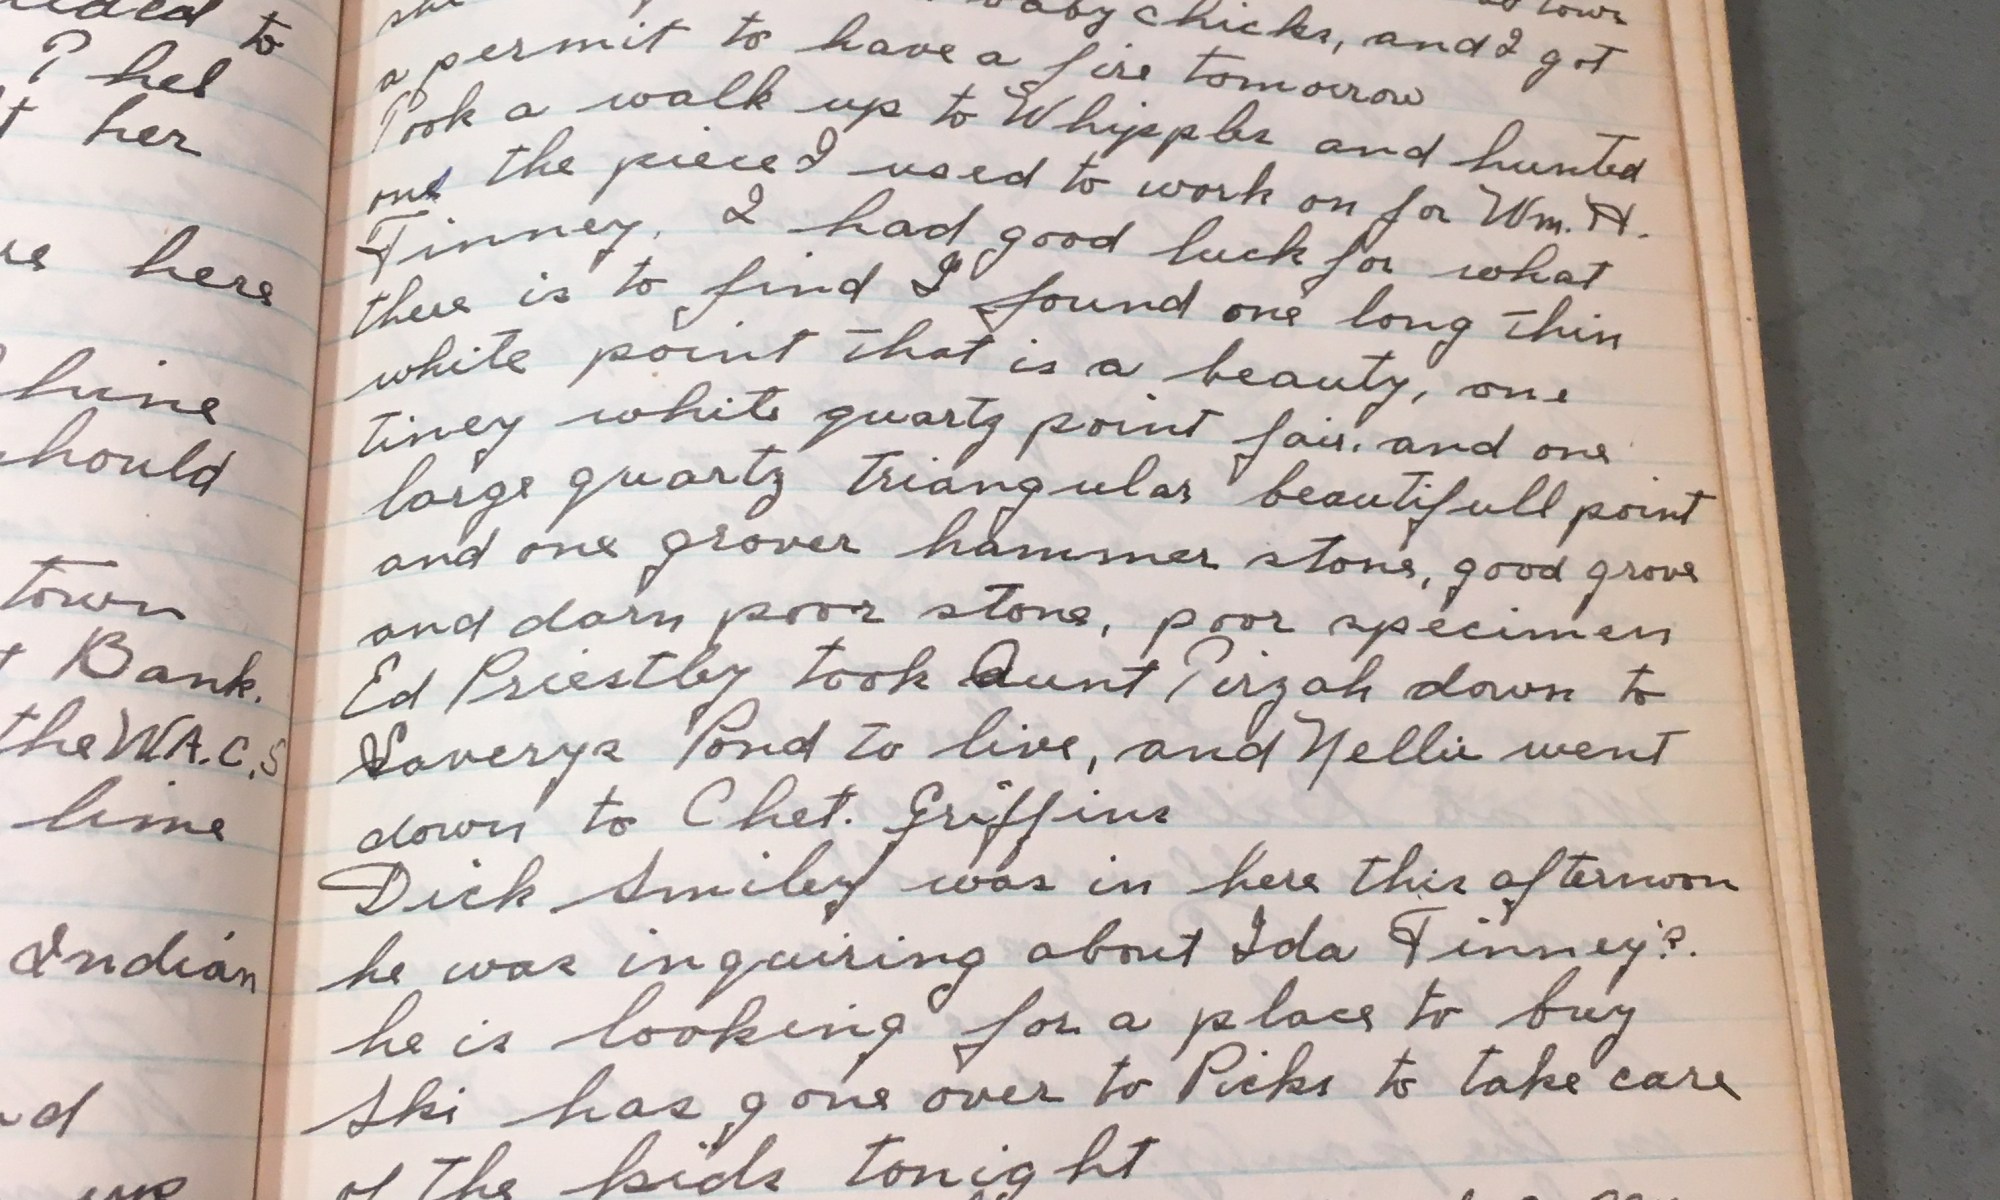 eded to
? hel
t her
re here
hine
hould
town
t Bank.
the W.A.C.S
lime
Indian
nd
up
she baby chicks, and I got
a permit to have a fire tomorrow
Took a walk up to Whipples and hunted
one the piece I used to work on for Wm. H.
Finney. I had good luck for what
there is to find I found one long thin
white point that is a beauty, one
tiney white quartz point fair. and one
large quartz triangular beautifull point
and one grover hammer stone, good grove
and darn poor stone, poor specimen
Ed Priestley took Aunt Tirzah down to
Saverys Pond to live, and Nellie went
down to Chet. Griffins
Dick Smiley was in here this afternoon
he was inquiring about Ida Finney's.
he is looking for a place to buy
Ski has gone over to Picks to take care
of the kids tonight